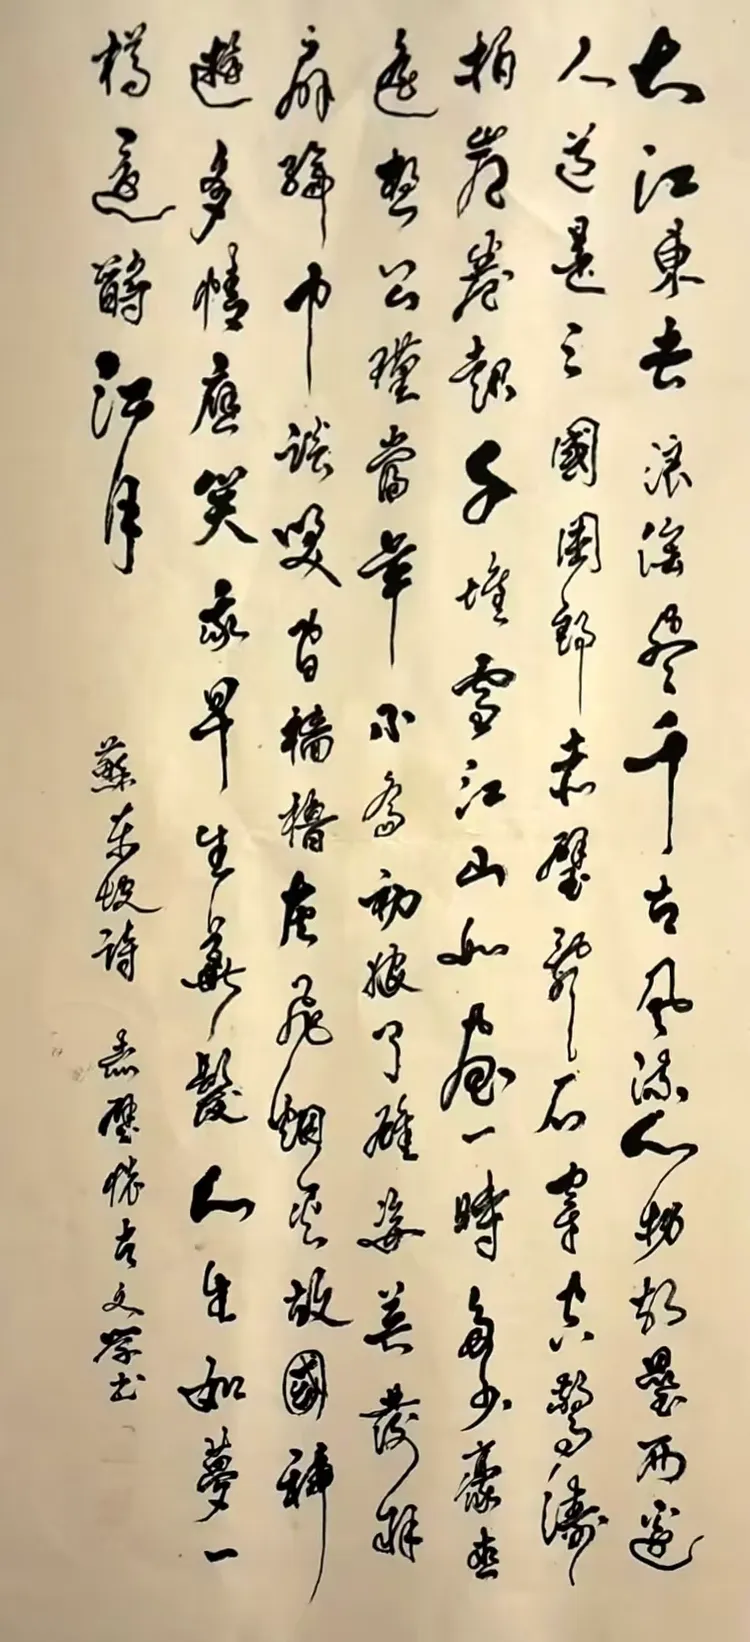 大江東去浪淘盡千古風流人物故壘西邊
人道是三國周郎赤壁亂石穿空驚濤
拍岸卷起千堆雪江山如畫一時多少豪杰
遥想公瑾當年小喬初嫁了雄姿英發羽
扇綸巾談咲間檣櫓灰飛烟滅故國神
遊多情應笑我早生華髮人生如夢一
樽還酹江月
蘇東坡詩 赤壁懷古文學書